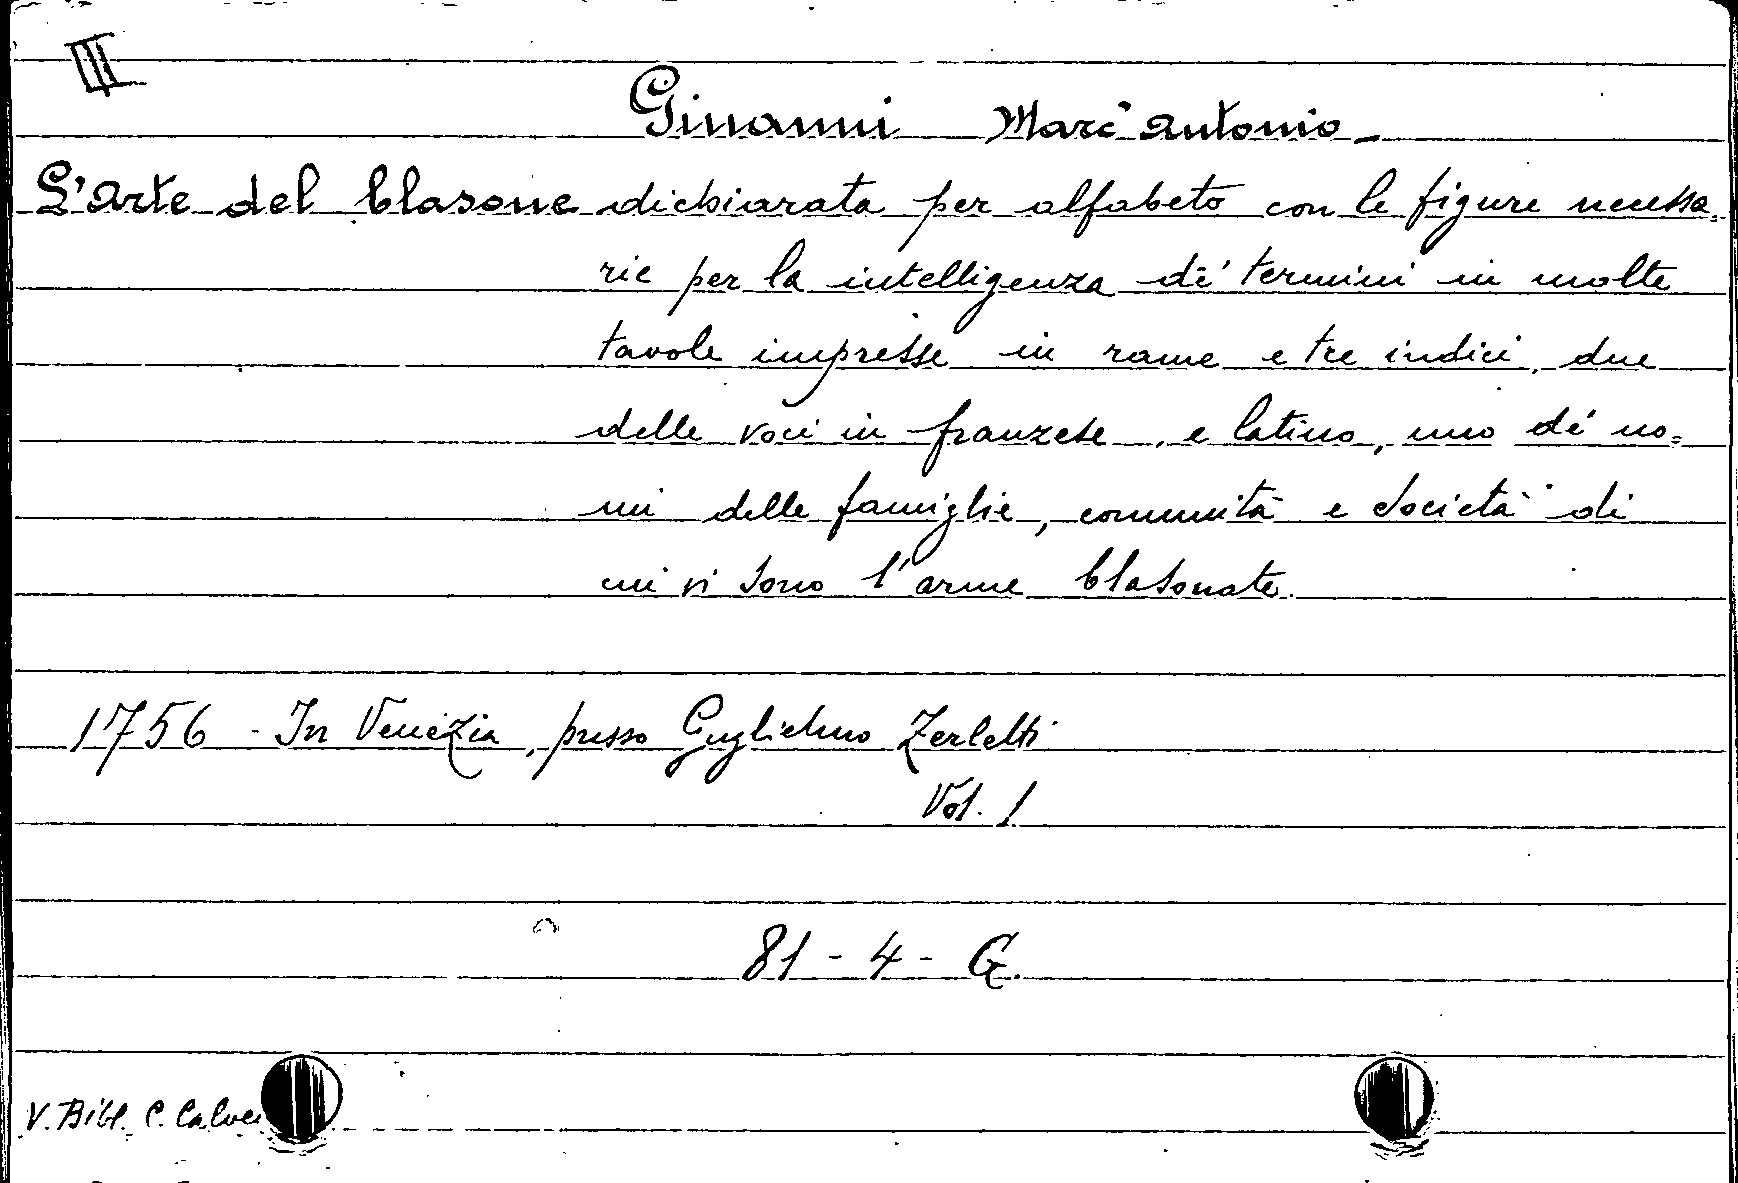 III
Ginanni Marc'Antonio -
L'Arte del blasone dichiarata per alfabeto con le figure necessa=
rie per la intelligenza de' termini in molte
tavole impresse in rame e tre indici, due
delle voci in franzese, e latino, uno de' no=
mi delle famiglie, comunità e società di
cui vi sono l'arme blasonate.
1756 - In Venezia, presso Guglielmo Zerletti
Vol. 1
81 - 4 - G.
V. Bibl. C.